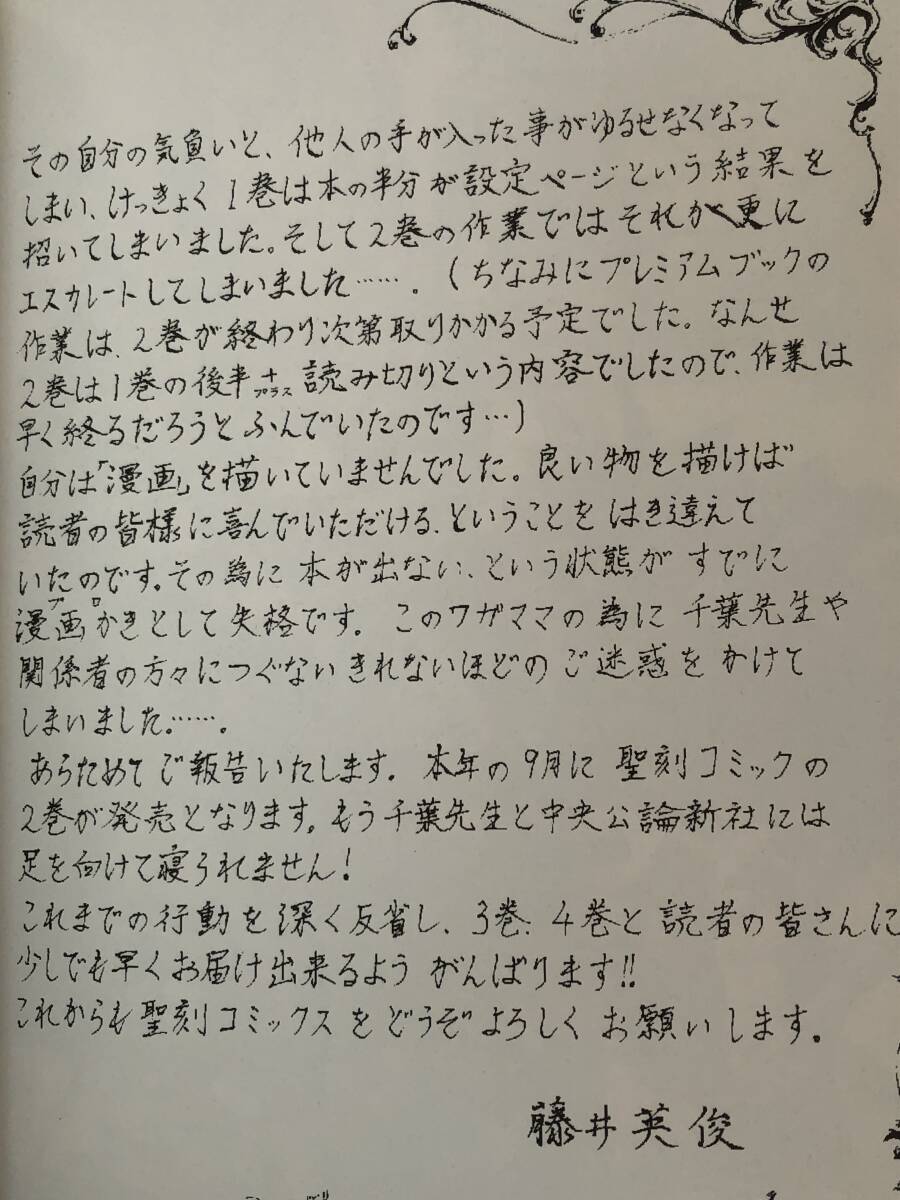 その自分の気負いと、他人の手が入った事がゆるせなくなって
しまい、けっきょく1巻は本の半分が設定ページという結果を
招いてしまいました。そして2巻の作業ではそれが更に
エスカレートしてしまいました……。(ちなみにプレミアムブックの
作業は、2巻が終わり次第取りかかる予定でした。なんせ
2巻は1巻の後半+プラス読み切りという内容でしたので、作業は
早く終るだろうとふんでいたのです…)
自分は「漫画」を描いていませんでした。良い物を描けば
読者の皆様に喜んでいただける、ということをはき違えて
いたのです。その為に本が出ない、という状態がすでに
プロ
漫画かきとして失格です。このワガママの為に千葉先生や
関係者の方々につぐないきれないほどのご迷惑をかけて
しまいました……。
あらためてご報告いたします。本年の9月に聖刻コミックの
2巻が発売となります。もう千葉先生と中央公論新社には
足を向けて寝られません!
これまでの行動を深く反省し、3巻、4巻と読者の皆さんに
少しでも早くお届け出来るようがんばります!!
これからも聖刻コミックスをどうぞよろしくお願いします。
藤井英俊